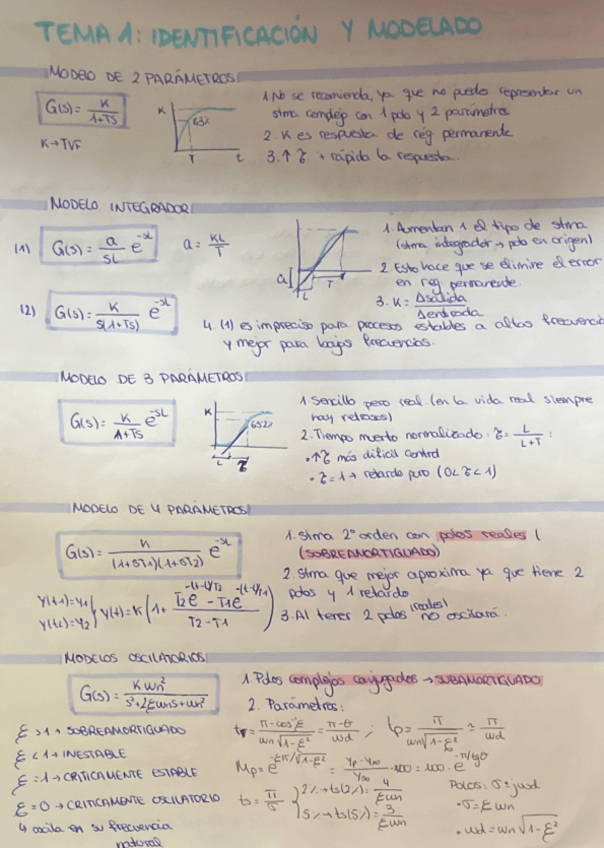 TEMA 1: IDENTIFICACIÓN Y MODELADO
MODELO DE 2 PARÁMETROS
G(s) = K / 1+TS
K → TVF
K
63%
T
t
1. No se recomienda, ya que no puede representar un
stma complejo con 1 polo y 2 parámetros
2. K es respuesta de rég permanente
3. ↑ τ → rápida la respuesta.
MODELO INTEGRADOR
(1) G(s) = a / SL e^-SL
a = KL / T
a
L
T
1. Aumentan 1 el tipo de stma
(stma integrador → polo en origen)
2. Esto hace que se elimine el error
en rég permanente.
3. K = Δsalida / Δentrada
(2) G(s) = K / S(1+TS) e^-SL
4. (1) es impreciso para procesos estables a altas frecuencia
y mejor para bajas frecuencias.
MODELO DE 3 PARÁMETROS
G(s) = K / 1+TS e^-SL
K
L
τ
1. Sencillo pero real (en la vida real siempre
hay retrasos)
2. Tiempo muerto normalizado: τ = L / L+T :
· ↑τ más difícil control
· τ = 1 → retardo puro (0 < τ < 1)
MODELO DE 4 PARÁMETROS
G(s) = K / (1+ST1)(1+ST2) e^-SL
y(t1) = y1
y(t2) = y2
y(t) = K (1 + T2e^-(t-L)/T2 - T1e^-(t-L)/T1 / T2 - T1)
1. Stma 2º orden con polos reales
(SOBREAMORTIGUADO)
2. Stma que mejor aproxima ya que tiene 2
polos y 1 retardo
3. Al tener 2 polos (reales) no oscilará.
MODELOS OSCILATORIOS
G(s) = Kwn² / s²+2ξwns+wn²
ξ > 1 → SOBREAMORTIGUADO
ξ < 1 → INESTABLE
ξ = 1 → CRITICAMENTE ESTABLE
ξ = 0 → CRITICAMENTE OSCILATORIO
↳ oscila en su frecuencia
natural
1. Polos complejos conjugados → SUBAMORTIGUADO
2. Parámetros:
tr = π - cos⁻¹ξ / wn√1-ξ² = π-θ / wd ; tp = π / wn√1-ξ² = π / wd
Mp = e^-ξπ/√1-ξ² = yp - y∞ / y∞ · 100 = 100 · e^-π/tgθ
ts = π / σ
2% → ts(2%) = 4 / ξwn
5% → ts(5%) = 3 / ξwn
Polos: σ ± jwd
· σ = ξwn
· wd = wn√1-ξ²